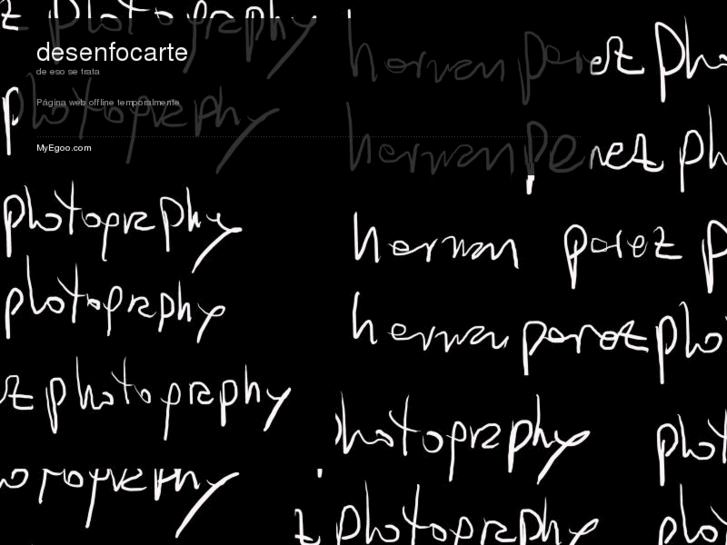 z photography
desenfocarte
de eso se trata
hernan perez pho
Página web offline temporalmente
photography
hernan perez ph
MyEgoo.com
photography
hernan perez p
photography
hernan perez pho
z photography
photography
phot
hotography
z photography
phot